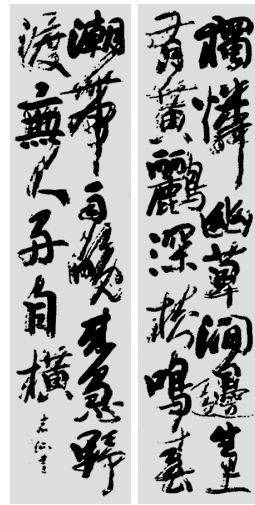 獨憐幽草澗邊生上
有黃鸝深樹鳴春
潮帶雨晚來急野
渡無人舟自橫